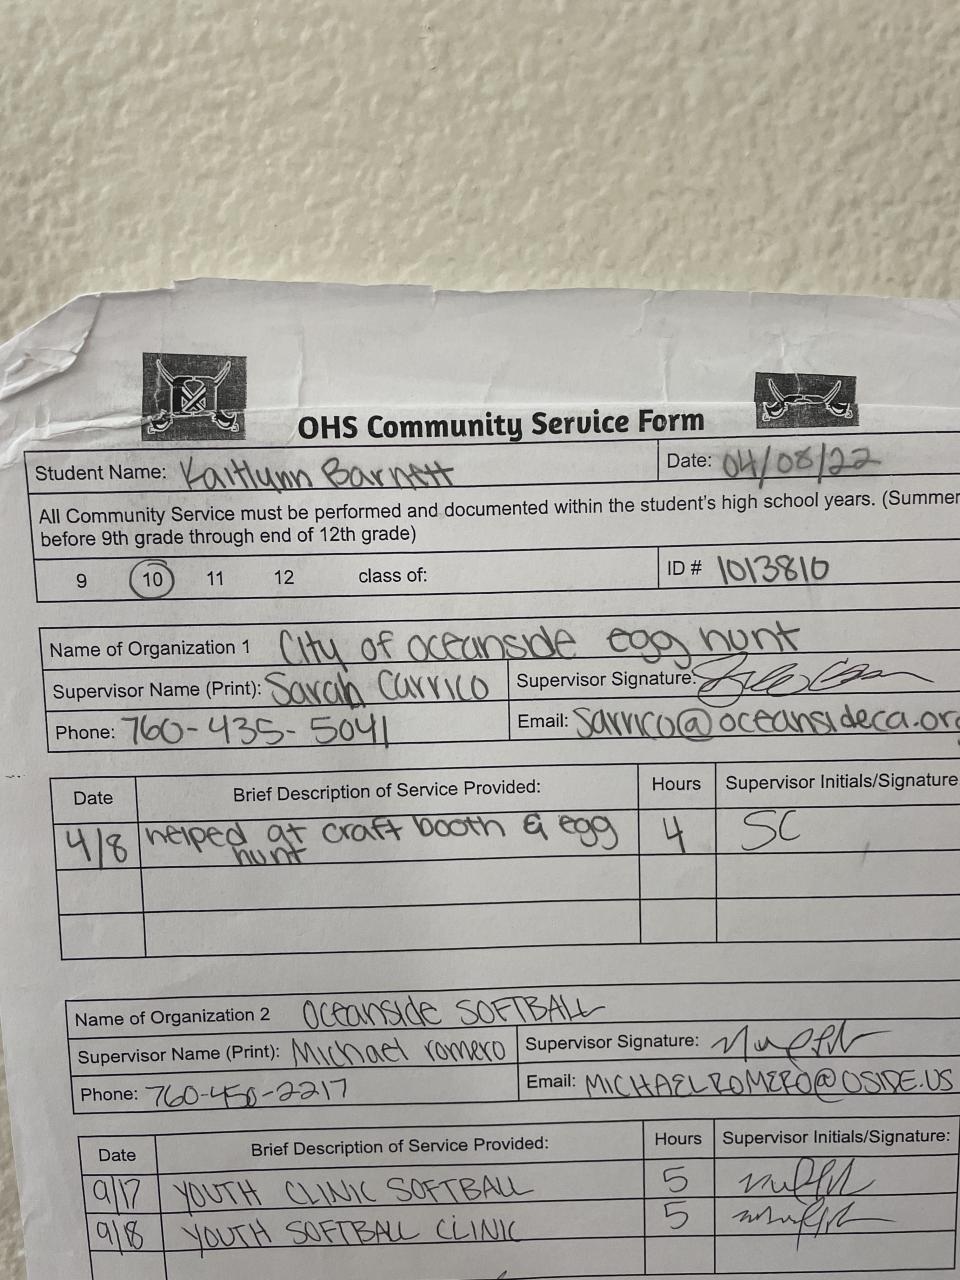 OHS Community Service Form
Student Name: Kaitlynn Barnett Date: 04/08/22
All Community Service must be performed and documented within the student's high school years. (Summer
before 9th grade through end of 12th grade)
9 10 11 12 class of: ID # 1013810
Name of Organization 1 City of oceanside egg hunt
Supervisor Name (Print): Sarah Carrico Supervisor Signature:
Phone: 760-435-5041 Email: Sarrico@oceansideca.org
Date Brief Description of Service Provided: Hours Supervisor Initials/Signature
4/8 helped at craft booth & egg 4 SC
hunt
Name of Organization 2 Oceanside SOFTBALL
Supervisor Name (Print): Michael romero Supervisor Signature:
Phone: 760-450-2217 Email: MICHAELROMERO@OSIDE.US
Date Brief Description of Service Provided: Hours Supervisor Initials/Signature:
9/17 YOUTH CLINIC SOFTBALL 5
9/8 YOUTH SOFTBALL CLINIC 5